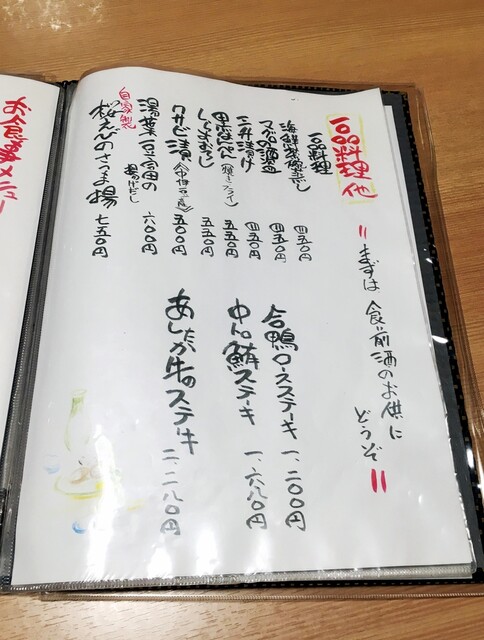 一品料理他
〃まずは食前酒のお供に
どうぞ〃
一品料理
海鮮茶碗蒸し 四五〇円
マグロ酒盗 四五〇円
三升漬け 四五〇円
五五〇円
しらすおろし 五五〇円
ワサビ漬 五〇〇円
湯葉豆腐の
揚げだし 六〇〇円
自家製
桜えんのさつま揚 七五〇円
合鴨ロースステーキ 一、二〇〇円
中トロ鮪ステーキ 一、六八〇円
あしたか牛のステーキ 二、二八〇円
お食事メニュー